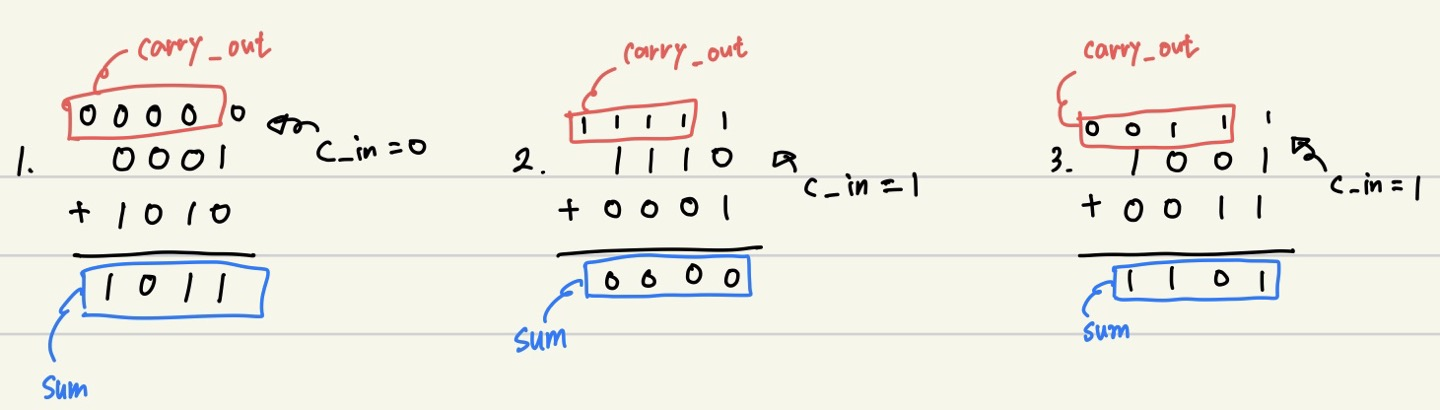 carry_out
0 0 0 0 0
C_in = 0
1. 0 0 0 1
+ 1 0 1 0
1 0 1 1
Sum
carry_out
1 1 1 1 1
2. 1 1 1 0
C_in = 1
+ 0 0 0 1
0 0 0 0
Sum
carry_out
0 0 1 1 1
3. 1 0 0 1
C_in = 1
+ 0 0 1 1
1 1 0 1
Sum